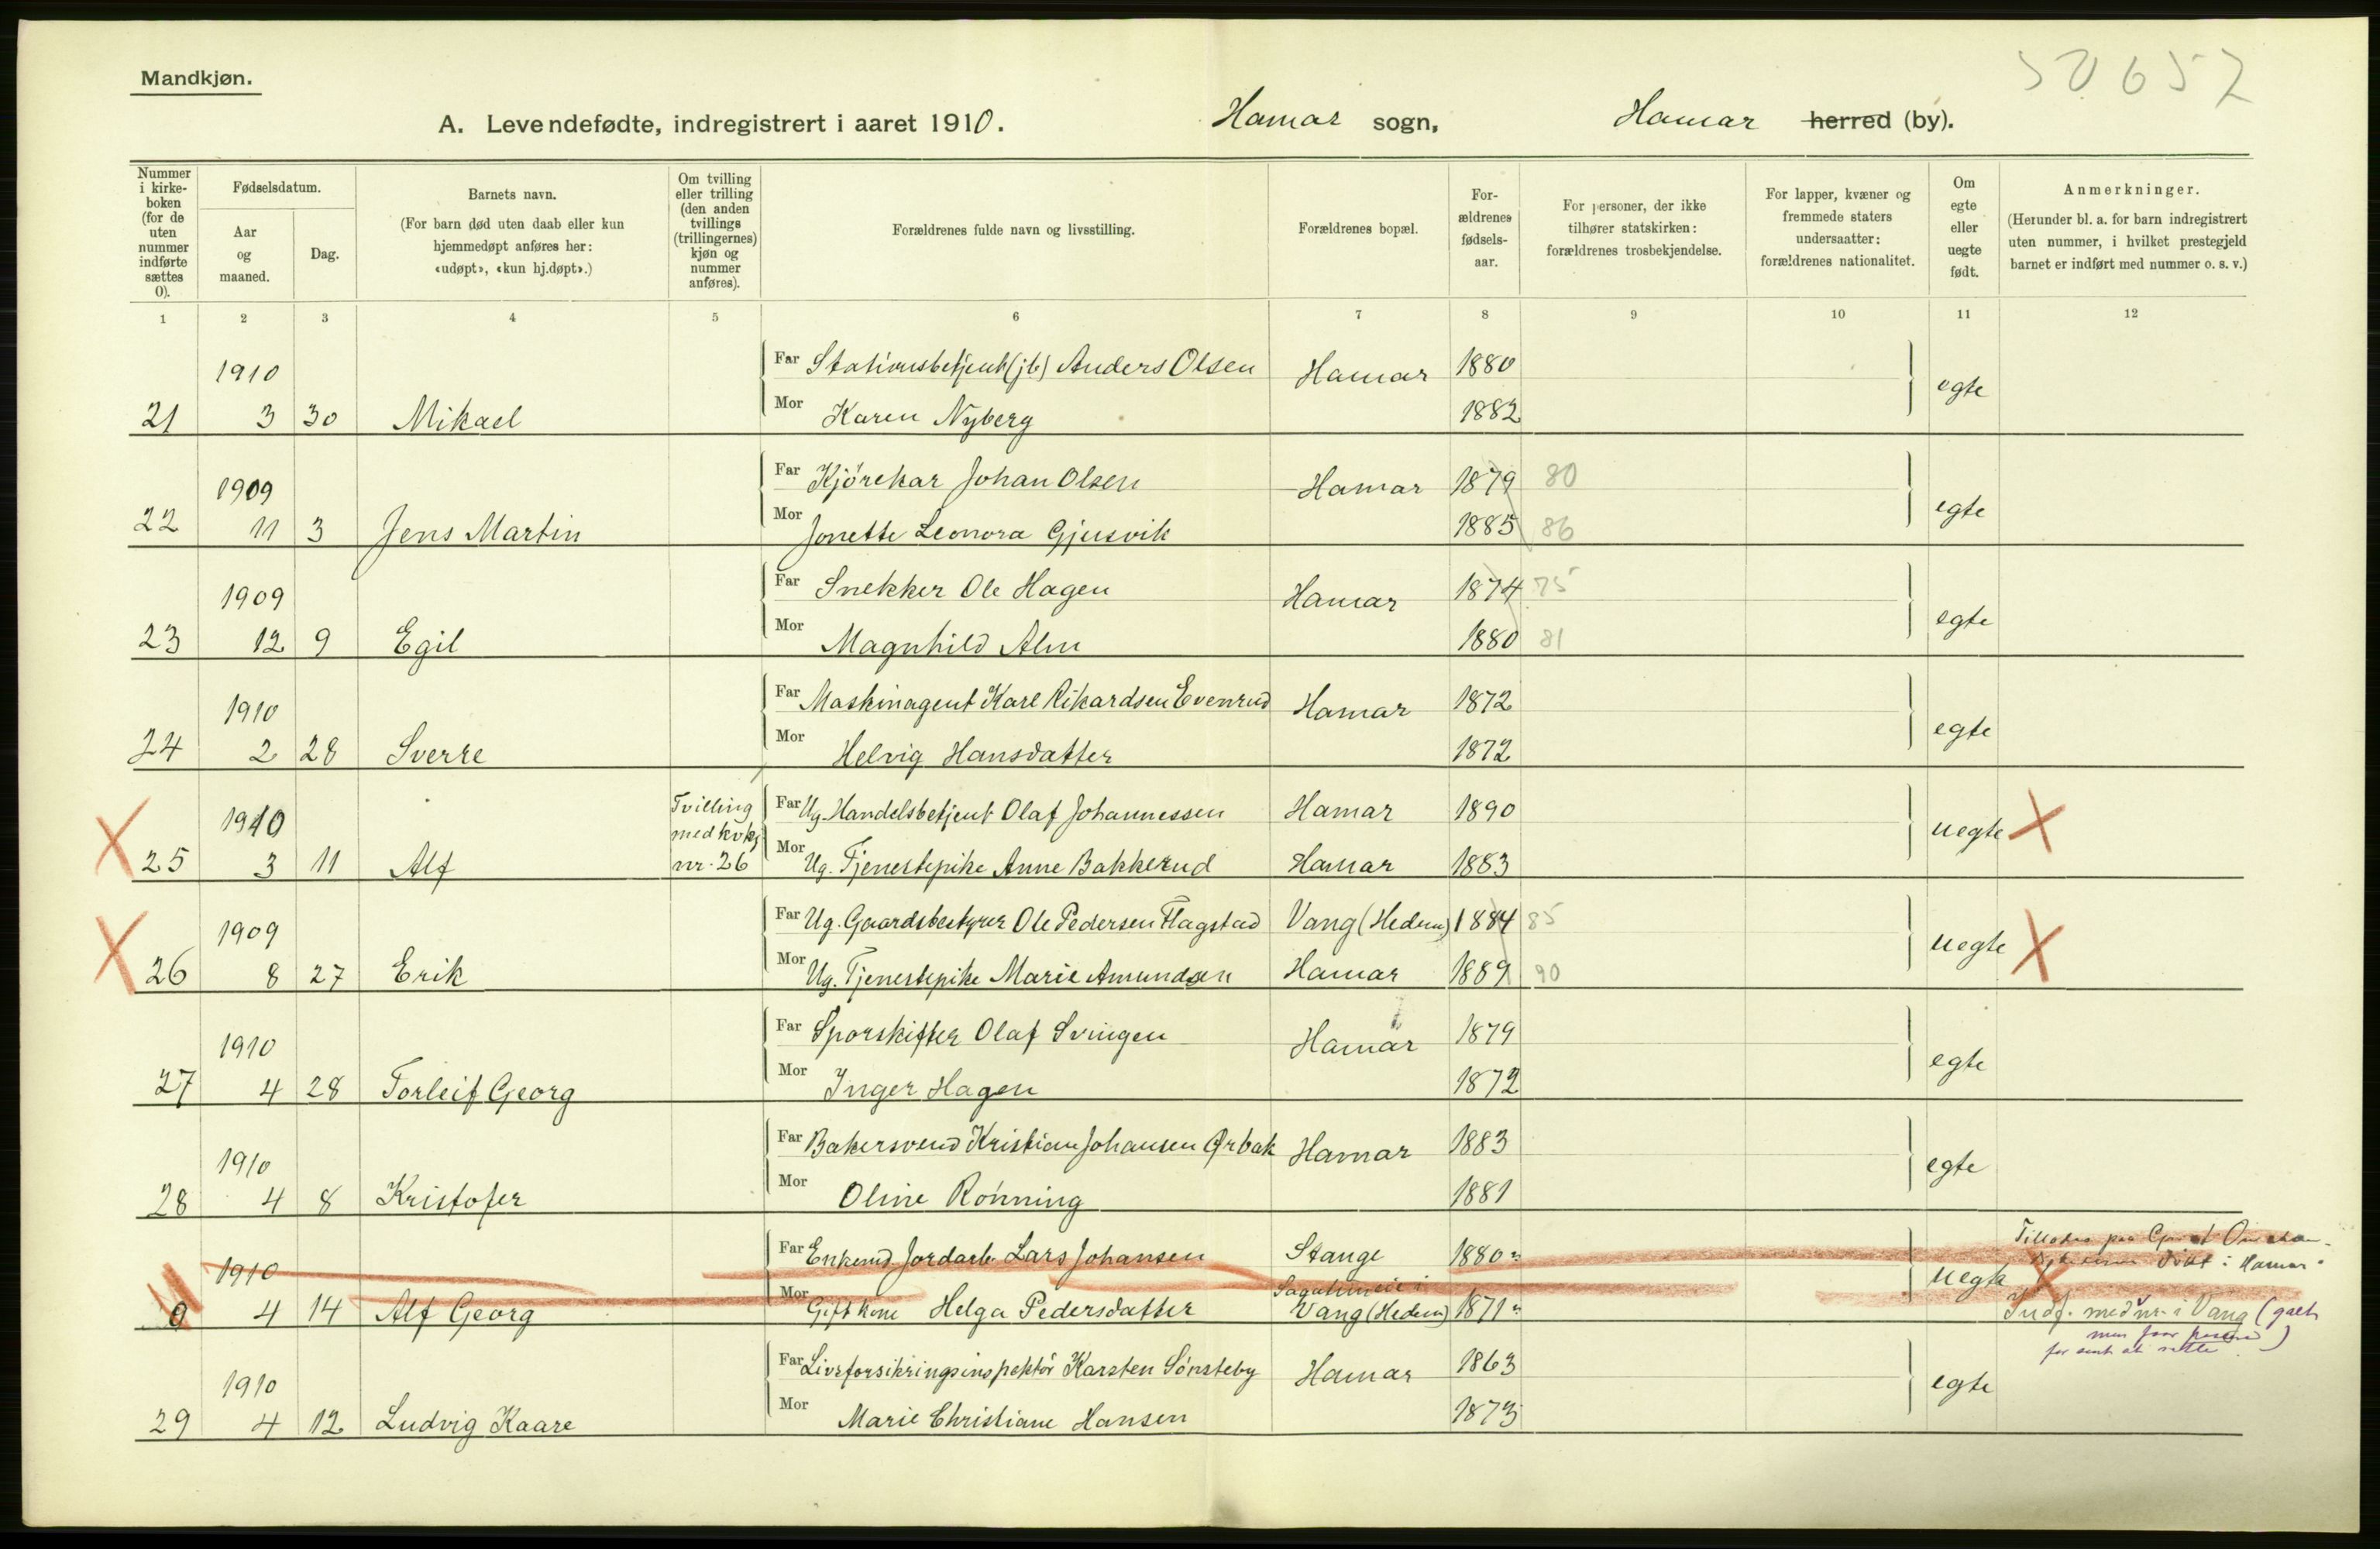 50657
Mandkjøn.
A. Levendefødte, indregistrert i aaret 1910. Hamar sogn, Hamar herred (by).
Nummer i kirkeboken (for de uten nummer indførte sættes 0).
Fødselsdatum.
Aar og maaned.
Dag.
Barnets navn.
(For barn død uten daab eller kun hjemmedøpt anføres her: «udøpt», «kun hj.døpt».)
Om tvilling eller trilling (den anden tvillings (trillingernes) kjøn og nummer anføres).
Forældrenes fulde navn og livsstilling.
Forældrenes bopæl.
For-ældrenes fødsels-aar.
For personer, der ikke tilhører statskirken: forældrenes trosbekjendelse.
For lapper, kvæner og fremmede staters undersaatter: forældrenes nationalitet.
Om egte eller uegte født.
Anmerkninger.
(Herunder bl. a. for barn indregistrert uten nummer, i hvilket prestegjeld barnet er indført med nummer o. s. v.)
1 2 3 4 5 6 7 8 9 10 11 12
1910 Far Stationsbetjent (jb) Anders Olsen Hamar 1880 egte
21 3 30 Mikael Mor Karen Nyberg 1882
1909 Far Kjörekar Johan Olsen Hamar 1879 80 egte
22 11 3 Jens Martin Mor Jonette Leonora Gjusvik 1885 86
1909 Far Snekker Ole Hagen Hamar 1874 75 egte
23 12 9 Egil Mor Magnhild Alm 1880 81
1910 Far Maskinagent Karl Rikardsen Evenrud Hamar 1872 egte
24 2 28 Sverre Mor Helvig Hansdatter 1872
1910 Tvilling med kvkj nr. 26 Far Ug. Handelsbetjent Olaf Johannessen Hamar 1890 uegte
25 3 11 Alf Mor Ug. Tjenestepike Anne Bakkerud Hamar 1883
1909 Far Ug. Gaardsbestyrer Ole Pedersen Flagstad Vang (Hedem) 1884 85 uegte
26 8 27 Erik Mor Ug. Tjenestepike Marie Amundsen Hamar 1889 90
1910 Far Sporskifter Olaf Svingen Hamar 1879 egte
27 4 28 Torleif Georg Mor Inger Hagen 1872
1910 Far Bakersvend Kristian Johansen Ørbak Hamar 1883 egte
28 4 8 Kristofer Mor Oline Rönning 1881
1910 Far Enkemd. Jordarb. Lars Johansen Stange 1880 uegte
0 4 14 Alf Georg Mor Gift kone Helga Pedersdatter Vang (Hedem) 1871
födt i Hamar
Indf. med nr. i Vang (galt
men for sent at rette)
1910 Far Livsforsikringsinspektör Karsten Sönsteby Hamar 1863 egte
29 4 12 Ludvig Kaare Mor Marie Christiane Hansen 1873